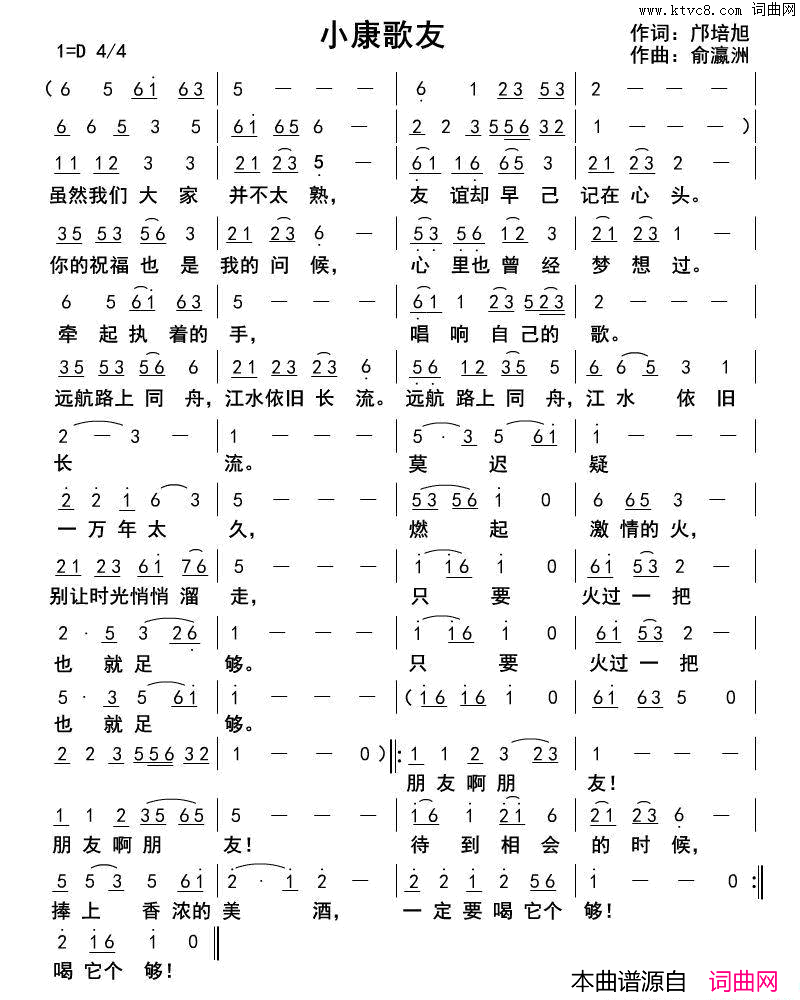 www.ktvc8.com 词曲网
小康歌友
1=D 4/4
作词：邝培旭
作曲：俞瀛洲
(6 5 61 63 | 5 — — — | 6 1 23 53 | 2 — — — |
6 6 5 3 5 | 61 65 6 — | 2 2 3 556 32 | 1 — — — )
11 12 3 3 | 21 23 5 — | 61 16 65 3 | 21 23 2 — |
虽然我们 大 家 并不太 熟， 友 谊却 早 己 记在 心 头。
35 53 56 3 | 21 23 6 — | 53 56 12 3 | 21 23 1 — |
你的祝福 也 是 我的 问 候， 心 里也 曾 经 梦 想 过。
6 5 61 63 | 5 — — — | 61 1 23 523 | 2 — — — |
牵 起 执 着的 手， 唱 响 自 己的 歌。
35 53 56 6 | 21 23 23 6 | 56 12 35 5 | 6 6 5 3 1 |
远航路上 同 舟，江水依旧 长 流。远航 路上 同 舟，江 水 依 旧
2 — 3 — | 1 — — — | 5 · 3 5 61 | 1 — — — |
长 流。 莫 迟 疑
2 2 1 6 3 | 5 — — — | 53 56 1 0 | 6 65 3 — |
一 万 年 太 久， 燃 起 激 情的 火，
21 23 61 76 | 5 — — — | 1 16 1 0 | 61 53 2 — |
别让时光悄悄 溜 走， 只 要 火过 一 把
2 · 5 3 26 | 1 — — — | 1 16 1 0 | 61 53 2 — |
也 就 足 够。 只 要 火过 一 把
5 · 3 5 61 | 1 — — — | (16 16 1 0 | 61 63 5 0 |
也 就 足 够。
2 2 3 556 32 | 1 — — 0 ) ‖: 1 1 2 3 23 | 1 — — — |
朋 友 啊 朋 友！
1 1 2 35 65 | 5 — — — | 16 1 21 6 | 21 23 6 — |
朋 友 啊 朋 友！ 待 到 相 会 的 时 候，
5 5 3 5 61 | 2 · 1 2 — | 2 2 1 2 56 | 1 — — 0 :‖
捧 上 香 浓的 美 酒， 一 定 要 喝 它个 够！
2 16 1 0 ‖
喝 它个 够！
本曲谱源自 词曲网